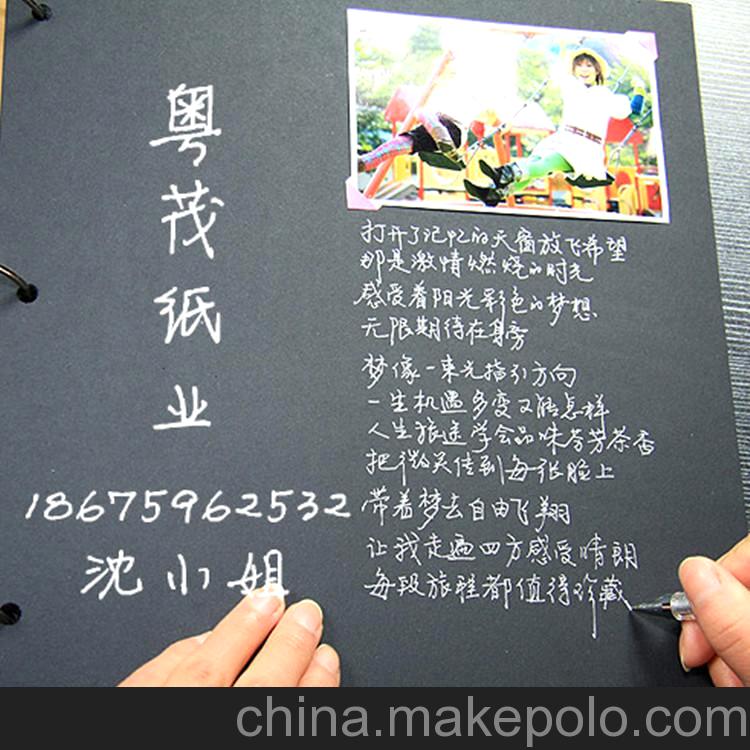 粤茂纸业
18675962532
沈小姐
打开了记忆的天窗放飞希望
那是激情燃烧的时光
感受着阳光彩色的梦想
无限期待在身旁
梦像一束光指引方向
一生机遇多变又能怎样
人生旅途学会品味芬芳茶香
把微笑传到每张脸上
带着梦去自由飞翔
让我走遍四方感受晴朗
每段旅程都值得珍藏
china.makepolo.com